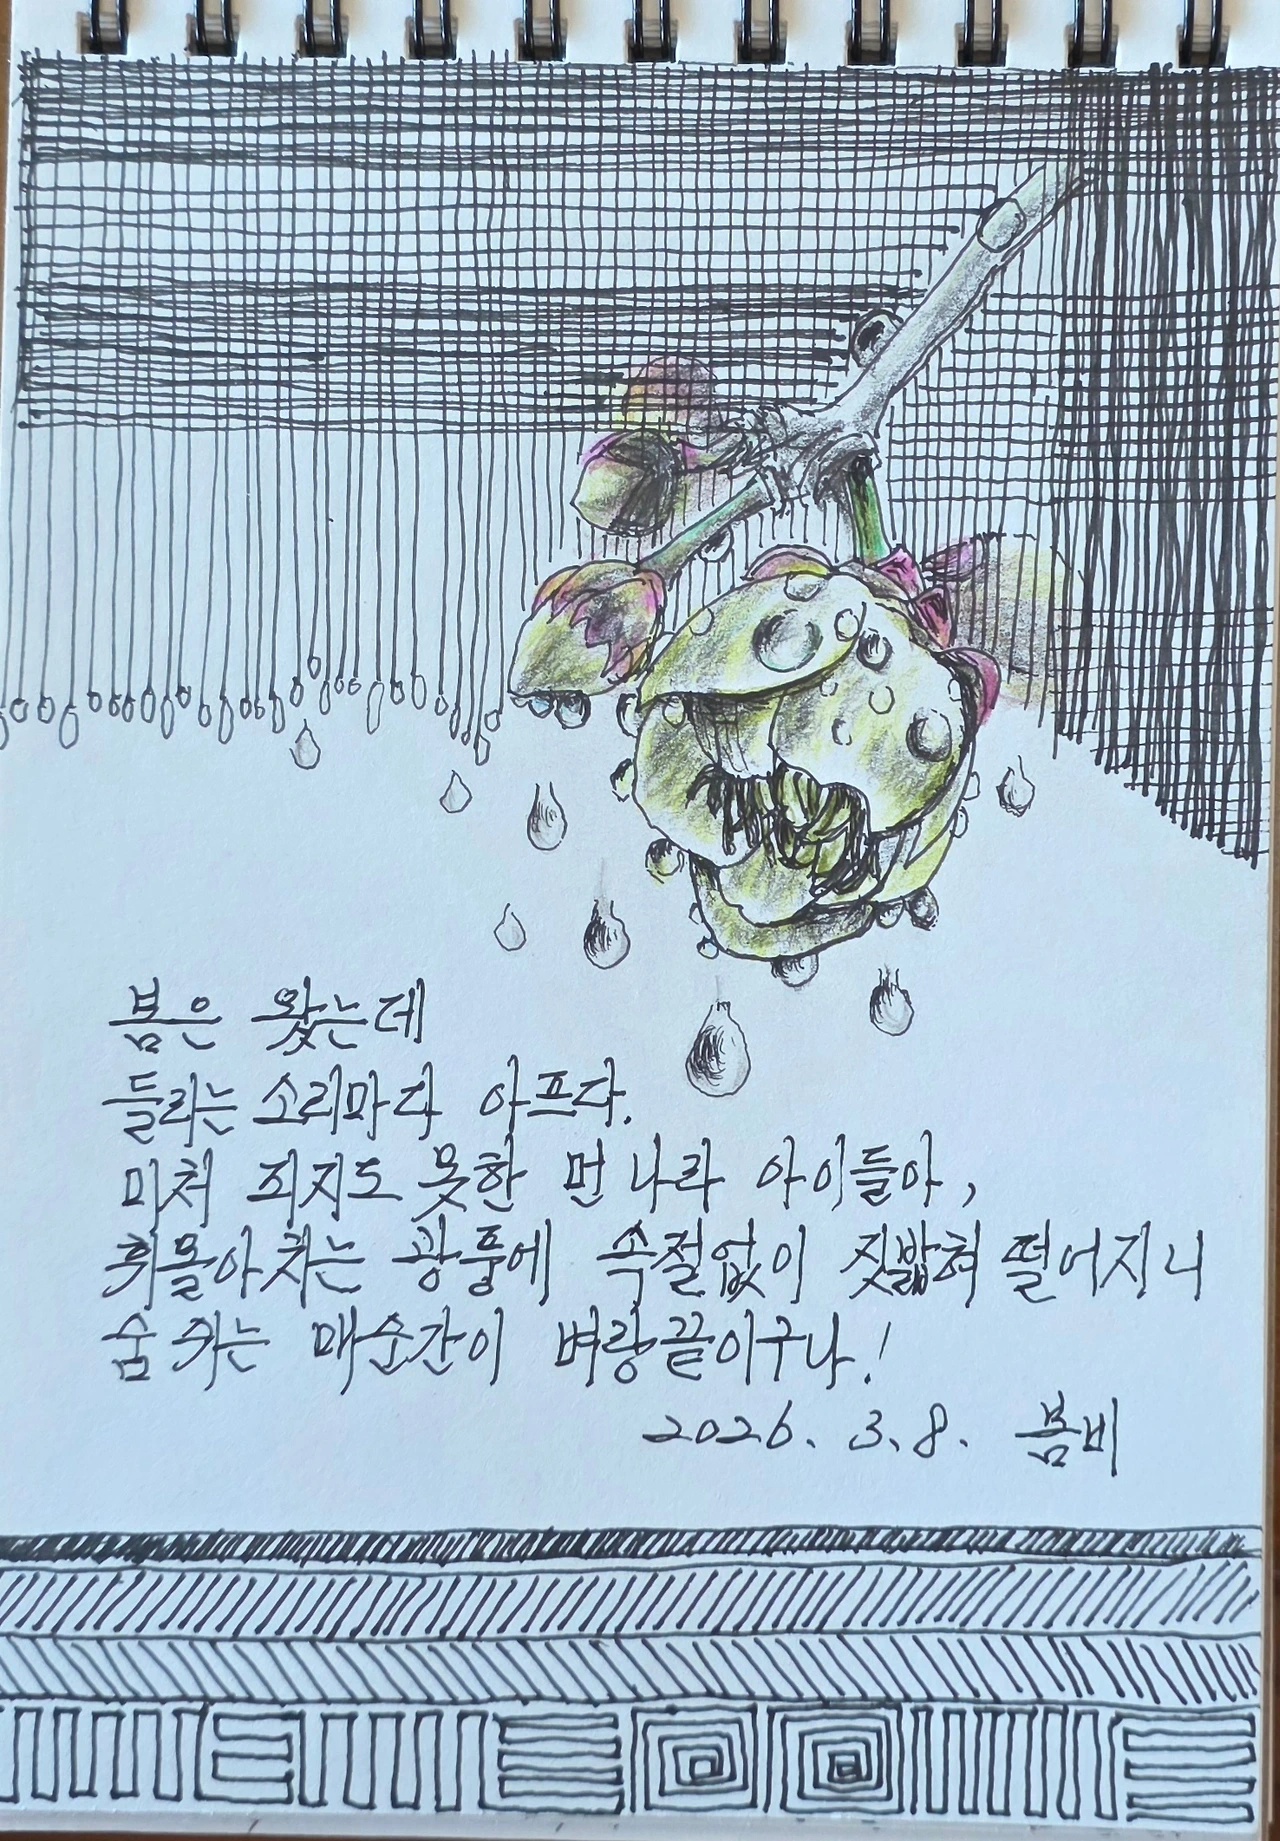 봄은 왔는데
들리는 소리마다 아프다.
미처 피지도 못한 먼 나라 아이들아,
휘몰아치는 광풍에 속절없이 짓밟혀 떨어지니
숨 쉬는 매순간이 벼랑끝이구나!
2026. 3. 8. 봄비